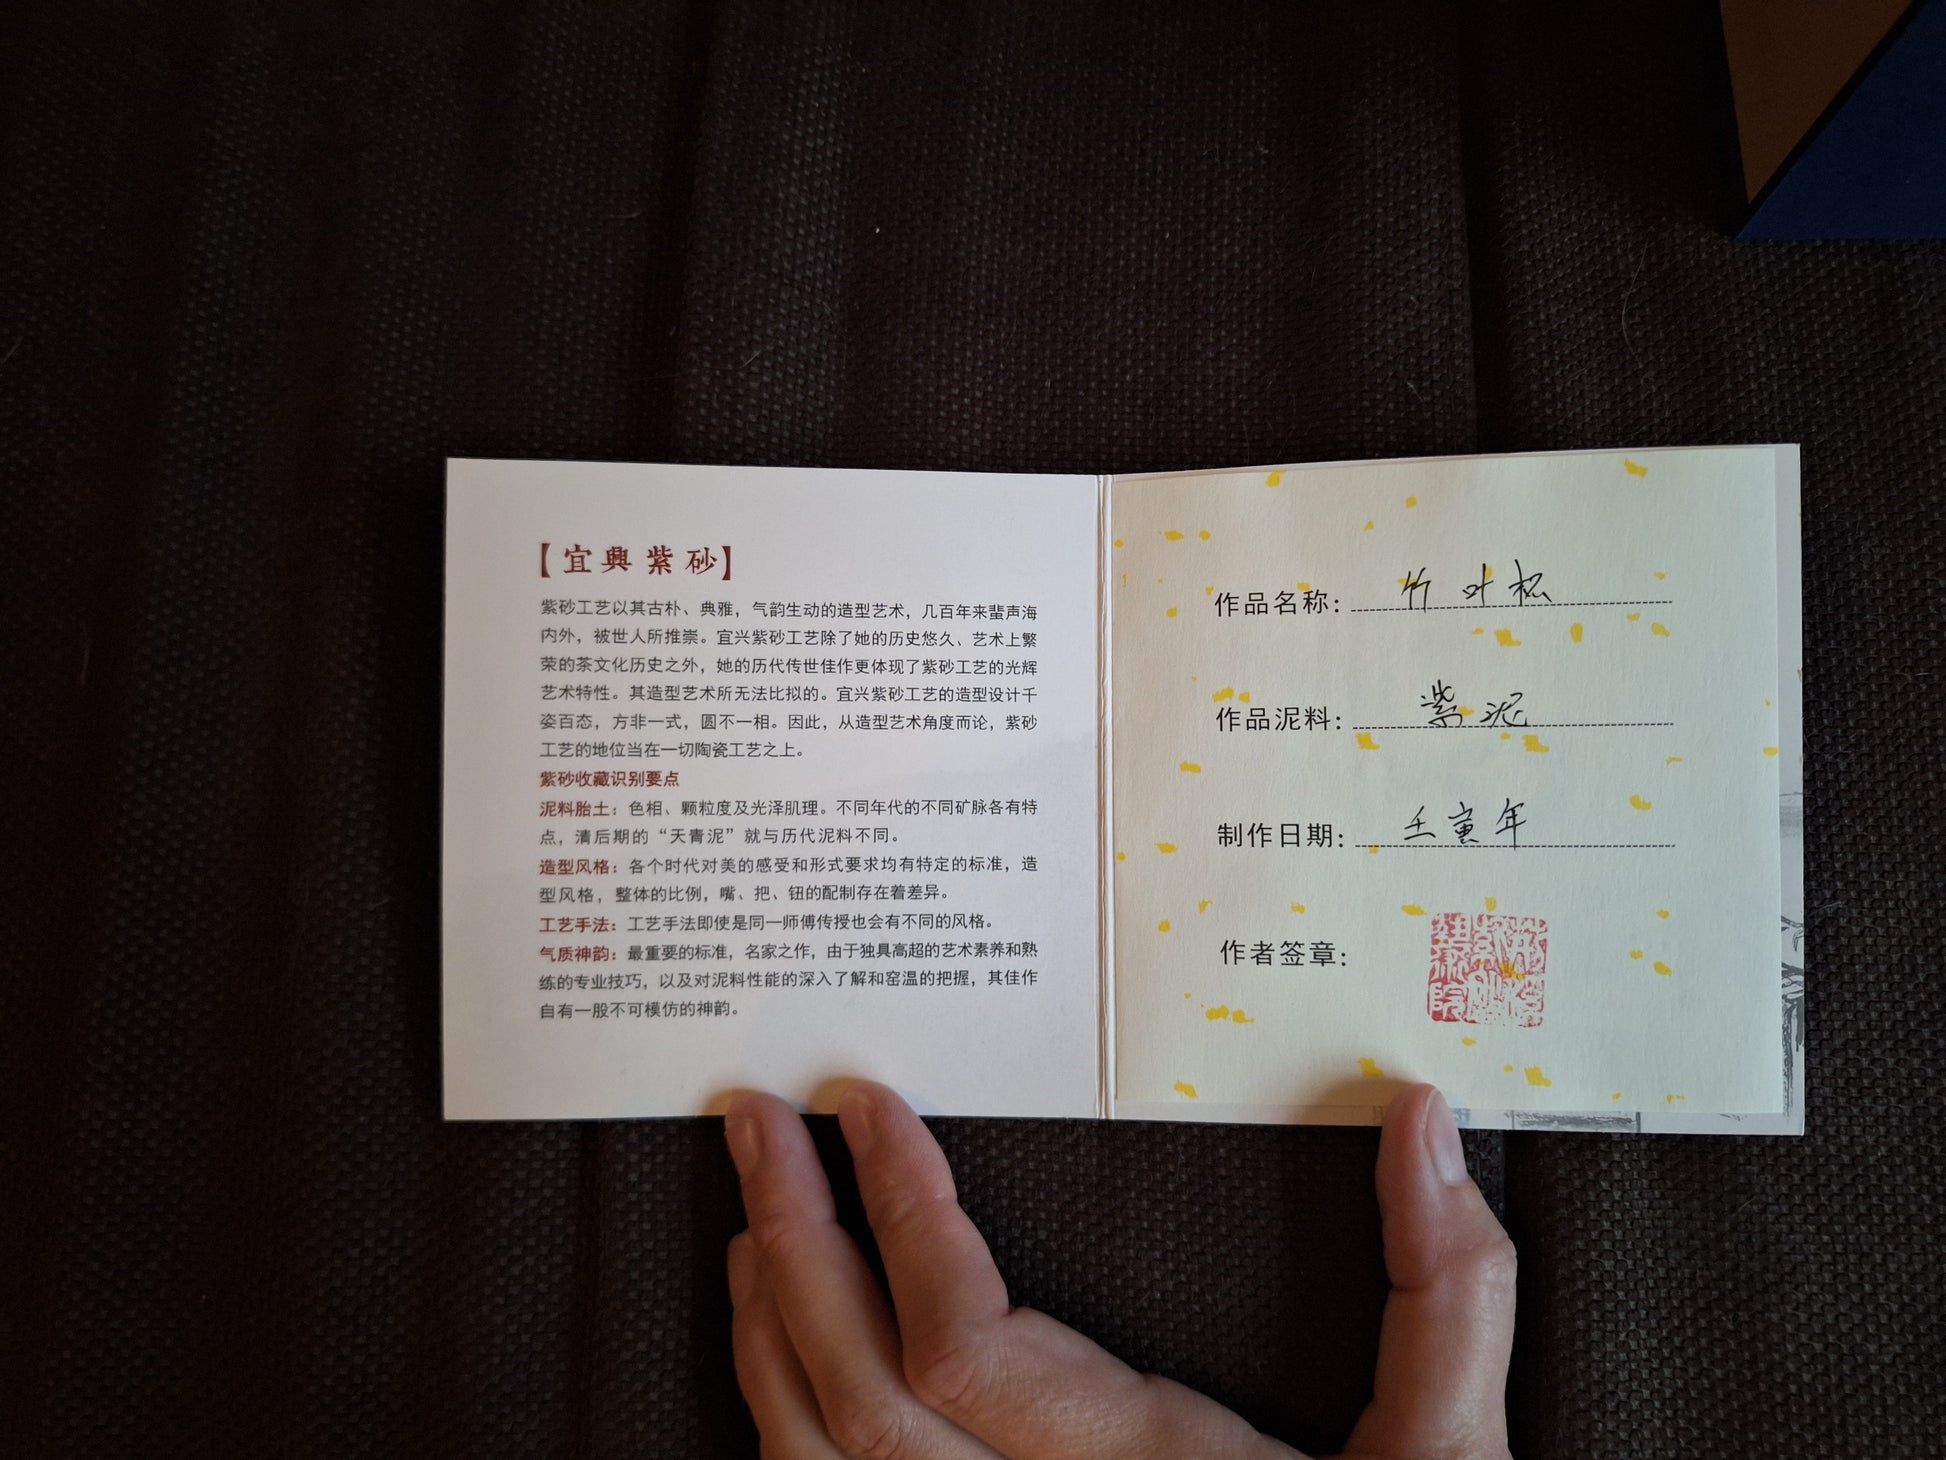 【宜興紫砂】
紫砂工艺以其古朴、典雅，气韵生动的造型艺术，几百年来蜚声海
内外，被世人所推崇。宜兴紫砂工艺除了她的历史悠久、艺术上繁
荣的茶文化历史之外，她的历代传世佳作更体现了紫砂工艺的光辉
艺术特性。其造型艺术所无法比拟的。宜兴紫砂工艺的造型设计千
姿百态，方非一式，圆不一相。因此，从造型艺术角度而论，紫砂
工艺的地位当在一切陶瓷工艺之上。
紫砂收藏识别要点
泥料胎土：色相、颗粒度及光泽肌理。不同年代的不同矿脉各有特
点，清后期的“天青泥”就与历代泥料不同。
造型风格：各个时代对美的感受和形式要求均有特定的标准，造
型风格，整体的比例，嘴、把、钮的配制存在着差异。
工艺手法：工艺手法即使是同一师傅传授也会有不同的风格。
气质神韵：最重要的标准，名家之作，由于独具高超的艺术素养和熟
练的专业技巧，以及对泥料性能的深入了解和窑温的把握，其佳作
自有一股不可模仿的神韵。
作品名称：竹叶松
作品泥料：紫泥
制作日期：壬寅年
作者签章：